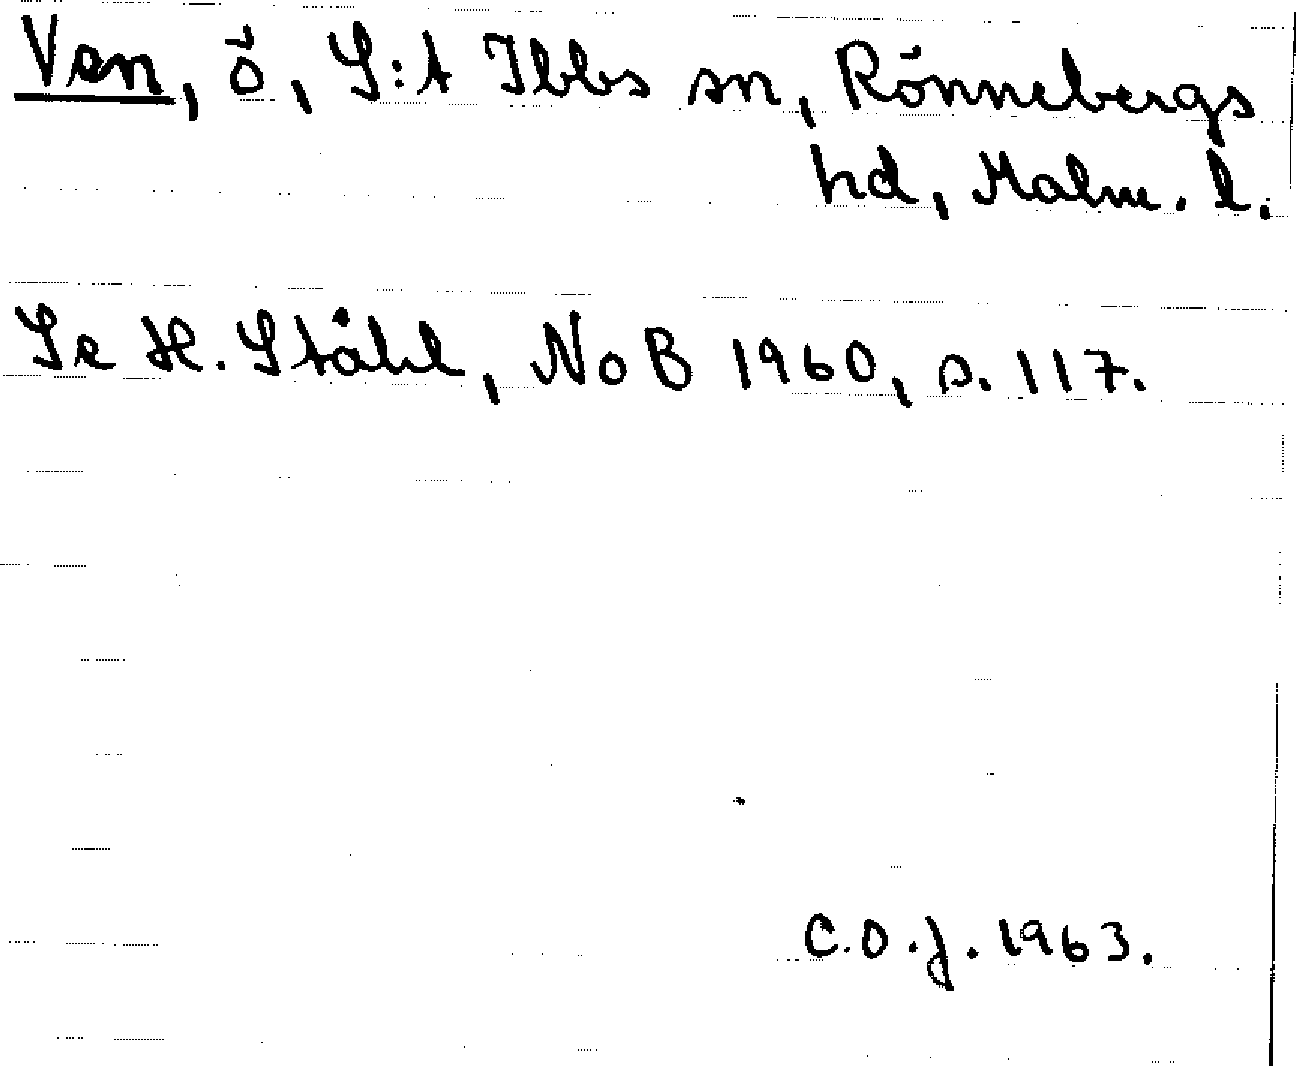 Ven, ö, S:t Ibbs sn, Rönnebergs
hd, Malm. l.
Se H. Ståhl, NoB 1960, s. 117.
C.O.J. 1963.